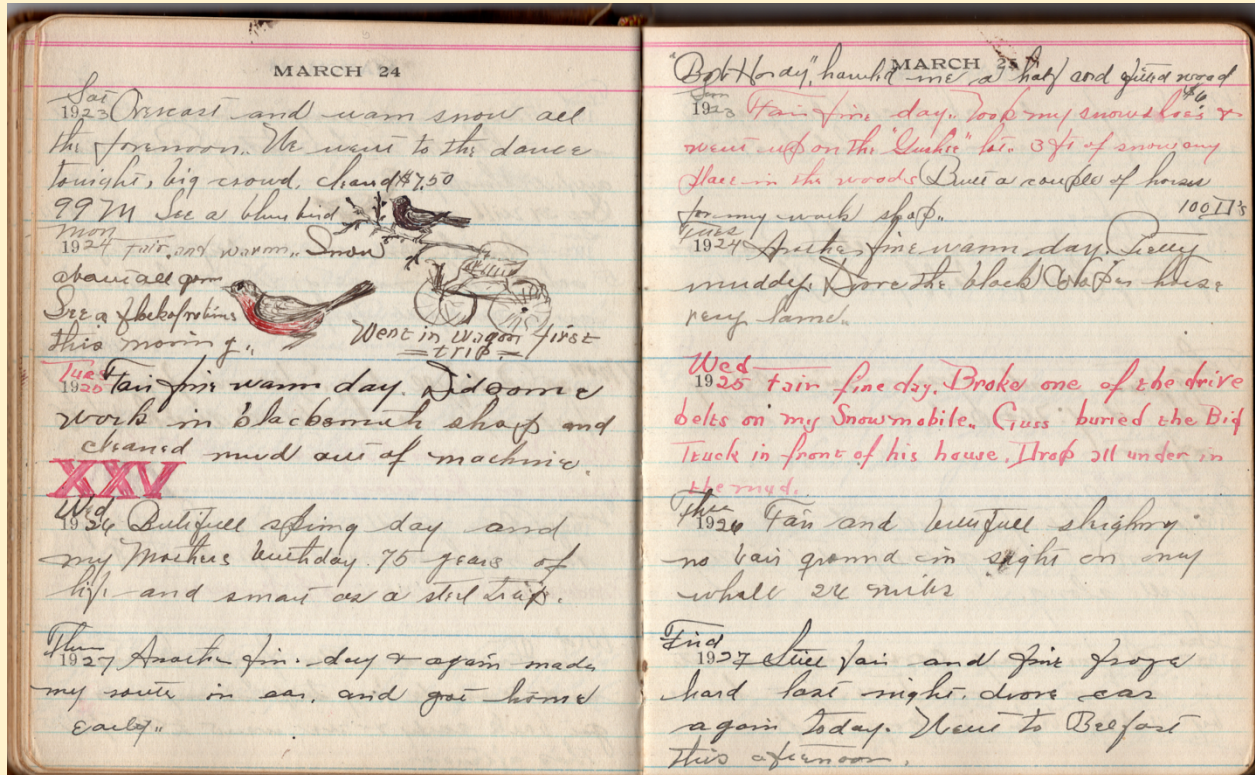 MARCH 24
Sat
1923 Overcast and warm snow all
the forenoon.. We went to the dance
tonight, big crowd. cleard $7.50
99 M See a blue bird
Mon
1924 Fair, and warm.. Snow
about all gon
See a flock of robins
this morning..
Went in wagon first
trip.
Tues
1925 Fair fine warm day. Did some
work in blacksmith shop and
cleaned mud out of machine.
XXV
Wed
1926 Butifull spring day and
my Mothers birthday. 75 years of
life and smart as a steel trap.
Thur
1927 Another fin. day & again made
my route in car. and got home
early..
MARCH 25
"Bob Hardy" hauled me a half and fitted wood
$6
Sun
1923 Fair fine day. Took my snowshoes &
went up on the lot. 3 ft of snow any
place in the woods Built a couple of horses
for my work shop..
100
Tues
1924 Another fine warm day. Pretty
muddy. Drove the black horse
very lame..
Wed
1925 Fair fine day. Broke one of the drive
belts on my Snowmobile.. Guss buried the Big
Truck in front of his house. Drop all under in
the mud.
Thur
1926 Fair and butifull sleighing
no bair ground in sight on my
whole 24 miles
Frid
1927 Still fair and fine froze
hard last night. drove car
again today. Went to Belfast
this afternoon.